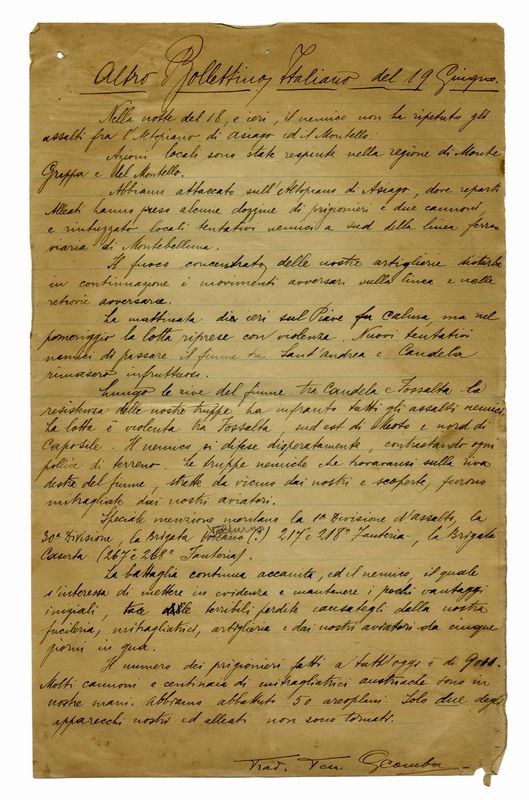 Altro Bollettino Italiano del 19 Giugno.
Nella notte del 18, e ieri, il nemico non ha ripetuto gli
assalti fra l'Altopiano di Asiago ed il Montello.
Azioni locali sono state respinte nella regione di Monte
Grappa e del Montello.
Abbiamo attaccato sull'Altopiano di Asiago, dove reparti
Alleati hanno preso alcune dozzine di prigionieri e due cannoni,
e rintuzzato locali tentativi nemici a sud della linea ferro
viaria di Montebelluna.
Il fuoco concentrato delle nostre artiglierie disturba
in continuazione i movimenti avversari sulla linea e nelle
retrovie avversarie.
La mattinata di ieri sul Piave fu calma, ma nel
pomeriggio la lotta riprese con violenza. Nuovi tentativi
nemici di passare il fiume tra Sant'Andrea e Candelu
rimasero infruttuosi.
Lungo le rive del fiume tra Candelu e Fossalta la
resistenza delle nostre truppe ha infranto tutti gli assalti nemici.
La lotta è violenta tra Fossalta, sud est di Meolo e nord di
Caposile. Il nemico si difese disperatamente, contrastando ogni
pollice di terreno. Le truppe nemiche che trovavansi sulla riva
destra del fiume, strette da vicino dai nostri e scoperte, furono
mitragliate dai nostri aviatori.
Speciale menzione meritano la 1a Divisione d'assalto, la
30a Divisione, la Brigata Volturno (?) 217 e 218° Fanteria, la Brigata
Caserta (267 e 268° Fanteria).
La battaglia continua accanita, ed il nemico, il quale
s'interessa di mettere in evidenza e mantenere i pochi vantaggi
iniziali, terribili perdite causategli dalla nostra
fucileria, mitragliatrici, artiglieria e dai nostri aviatori da cinque
giorni in qua.
Il numero dei prigionieri fatti a tutt'oggi è di
Molti cannoni e centinaia di mitragliatrici austriache sono in
nostre mani. Abbiamo abbattuto 50 areoplani. Solo due degli
apparecchi nostri ed alleati non sono tornati.
Trad. Ten.